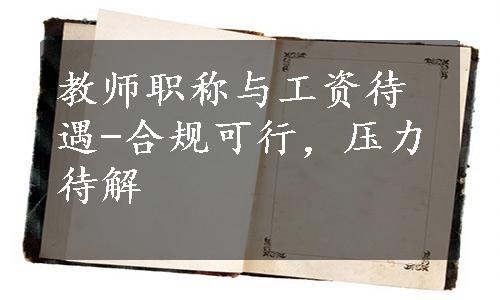 教师职称与工资待
遇-合规可行，压力
待解